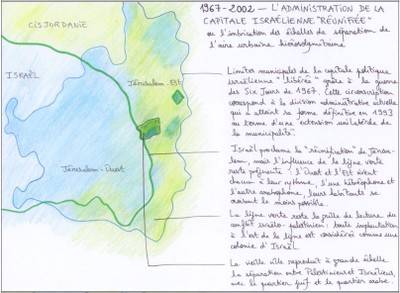 1967-2002 — L'ADMINISTRATION DE LA
CAPITALE ISRAÉLIENNE "RÉUNIFIÉE"
ou l'imbrication des échelles de séparation de
l'aire urbaine hiérosolymitaine
CISJORDANIE
ISRAËL
Jérusalem-Est
Jérusalem-Ouest
Limites municipales de la capitale politique
israélienne "libérée" grâce à la guerre
des Six Jours de 1967. Cette circonscription
correspond à la division administrative actuelle
qui a atteint sa forme définitive en 1993
au terme d'une extension unilatérale de
la municipalité.
Israël proclame la "réunification" de Jérusa-
lem, mais l'influence de la ligne verte
reste prégnante : l'Ouest et l'Est vivent
chacun à leur rythme, l'une hébréophone et
l'autre arabophone, leurs habitants se
croisent le moins possible.
La ligne verte reste la grille de lecture du
conflit israélo-palestinien : toute implantation
à l'est de la ligne est considérée comme une
colonie d'Israël.
La vieille ville reproduit à grande échelle
la séparation entre Palestiniens et Israéliens,
avec le quartier juif et le quartier arabe.